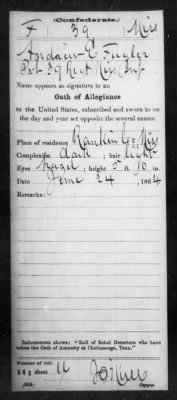 (Confederate.)
F 39 Miss
Andrew E Fugler
Pvt 39 Regt Miss Inf
Name appears as signature to an
Oath of Allegiance
to the United States, subscribed and sworn to on
the day and year set opposite the several names.
Place of residence Rankin Co Miss
Complexion dark; hair light
Eyes hazel; height 5 ft. 10 in.
Date June 24, 1864
Remarks:
Indorsement shows: "Roll of Rebel Deserters who have
taken the Oath of Amnesty at Chattanooga, Tenn."
Number of roll:
sheet 16
Copyist.